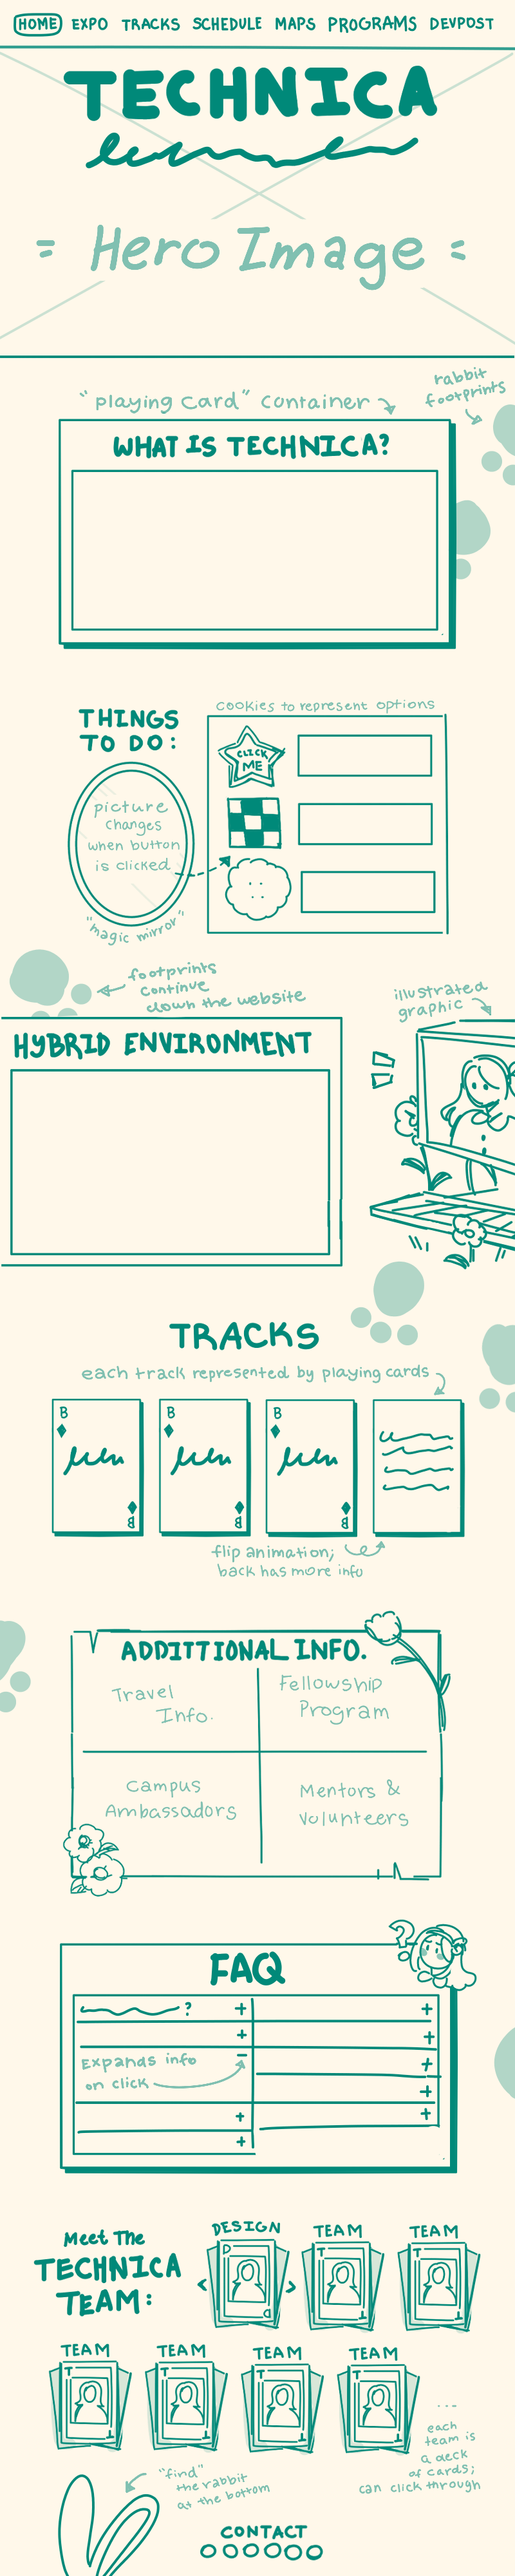 HOME EXPO TRACKS SCHEDULE MAPS PROGRAMS DEVPOST
TECHNICA
= Hero Image =
rabbit
footprints
"playing card" container
WHAT IS TECHNICA?
cookies to represent options
THINGS
TO DO:
CLICK
ME
picture
changes
when button
is clicked
"magic mirror"
footprints
continue
down the website
illustrated
graphic
HYBRID ENVIRONMENT
TRACKS
each track represented by playing cards
B B B
B B B
flip animation;
back has more info
ADDITTIONAL INFO.
Travel
Info.
Fellowship
Program
Campus
Ambassadors
Mentors &
Volunteers
?
FAQ
? + +
+ +
Expands info - +
on click +
+ +
+
Meet The
TECHNICA
TEAM:
DESIGN TEAM TEAM
D T T
< >
D T T
TEAM TEAM TEAM TEAM
T T T T
T T T T
...
each
team is
a deck
of cards;
can click through
"find"
the rabbit
at the bottom
CONTACT